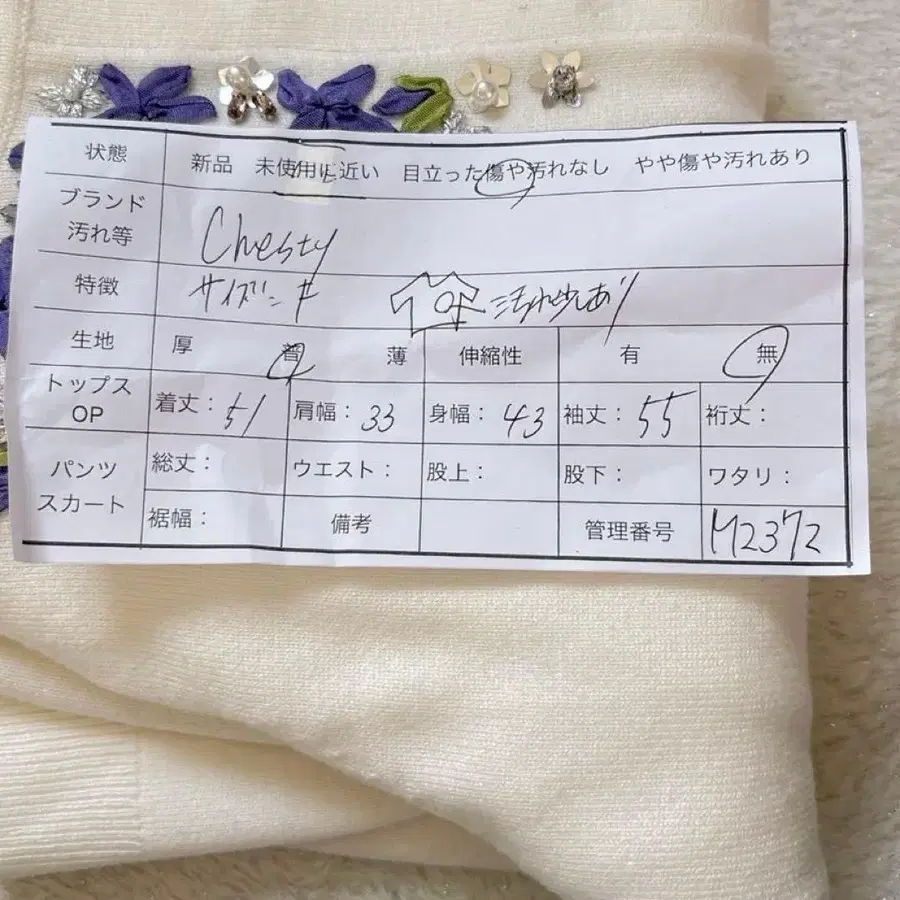 状態 新品 未使用に近い 目立った傷や汚れなし やや傷や汚れあり
ブランド 汚れ等 Chesty
特徴 サイズ：F 汚れ少しあり
生地 厚 普 薄 伸縮性 有 無
トップス OP 着丈：51 肩幅：33 身幅：43 袖丈：55 裄丈：
パンツ スカート 総丈： ウエスト： 股上： 股下： ワタリ：
裾幅： 備考 管理番号 M2372